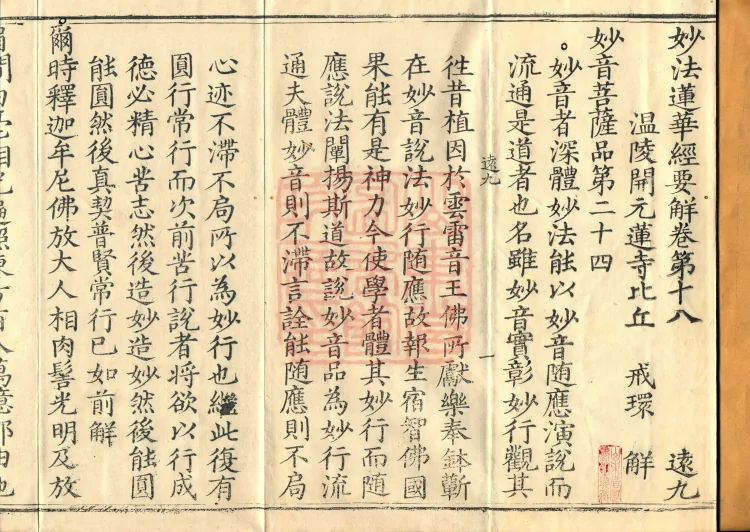 妙法蓮華經要解卷第十八 遠九
温陵開元蓮寺比丘 戒環 解
妙音菩薩品第二十四
妙音者深體妙法能以妙音随應演說而
流通是道者也名雖妙音實彰妙行觀其
遠九 一
徃昔植因於雲雷音王佛所獻樂奉鉢蘄
在妙音說法妙行随應故報生宿智佛國
果能有是神力今使學者體其妙行而随
應說法闡揚斯道故說妙音品為妙行流
通夫體妙音則不滯言詮能随應則不局
心迹不滯不局所以為妙行也繼此復有
圓行常行而次前苦行說者將欲以行成
德必精心苦志然後造妙造妙然後能圓
能圓然後真契普賢常行已如前解
爾時釋迦牟尼佛放大人相肉髻光明及放